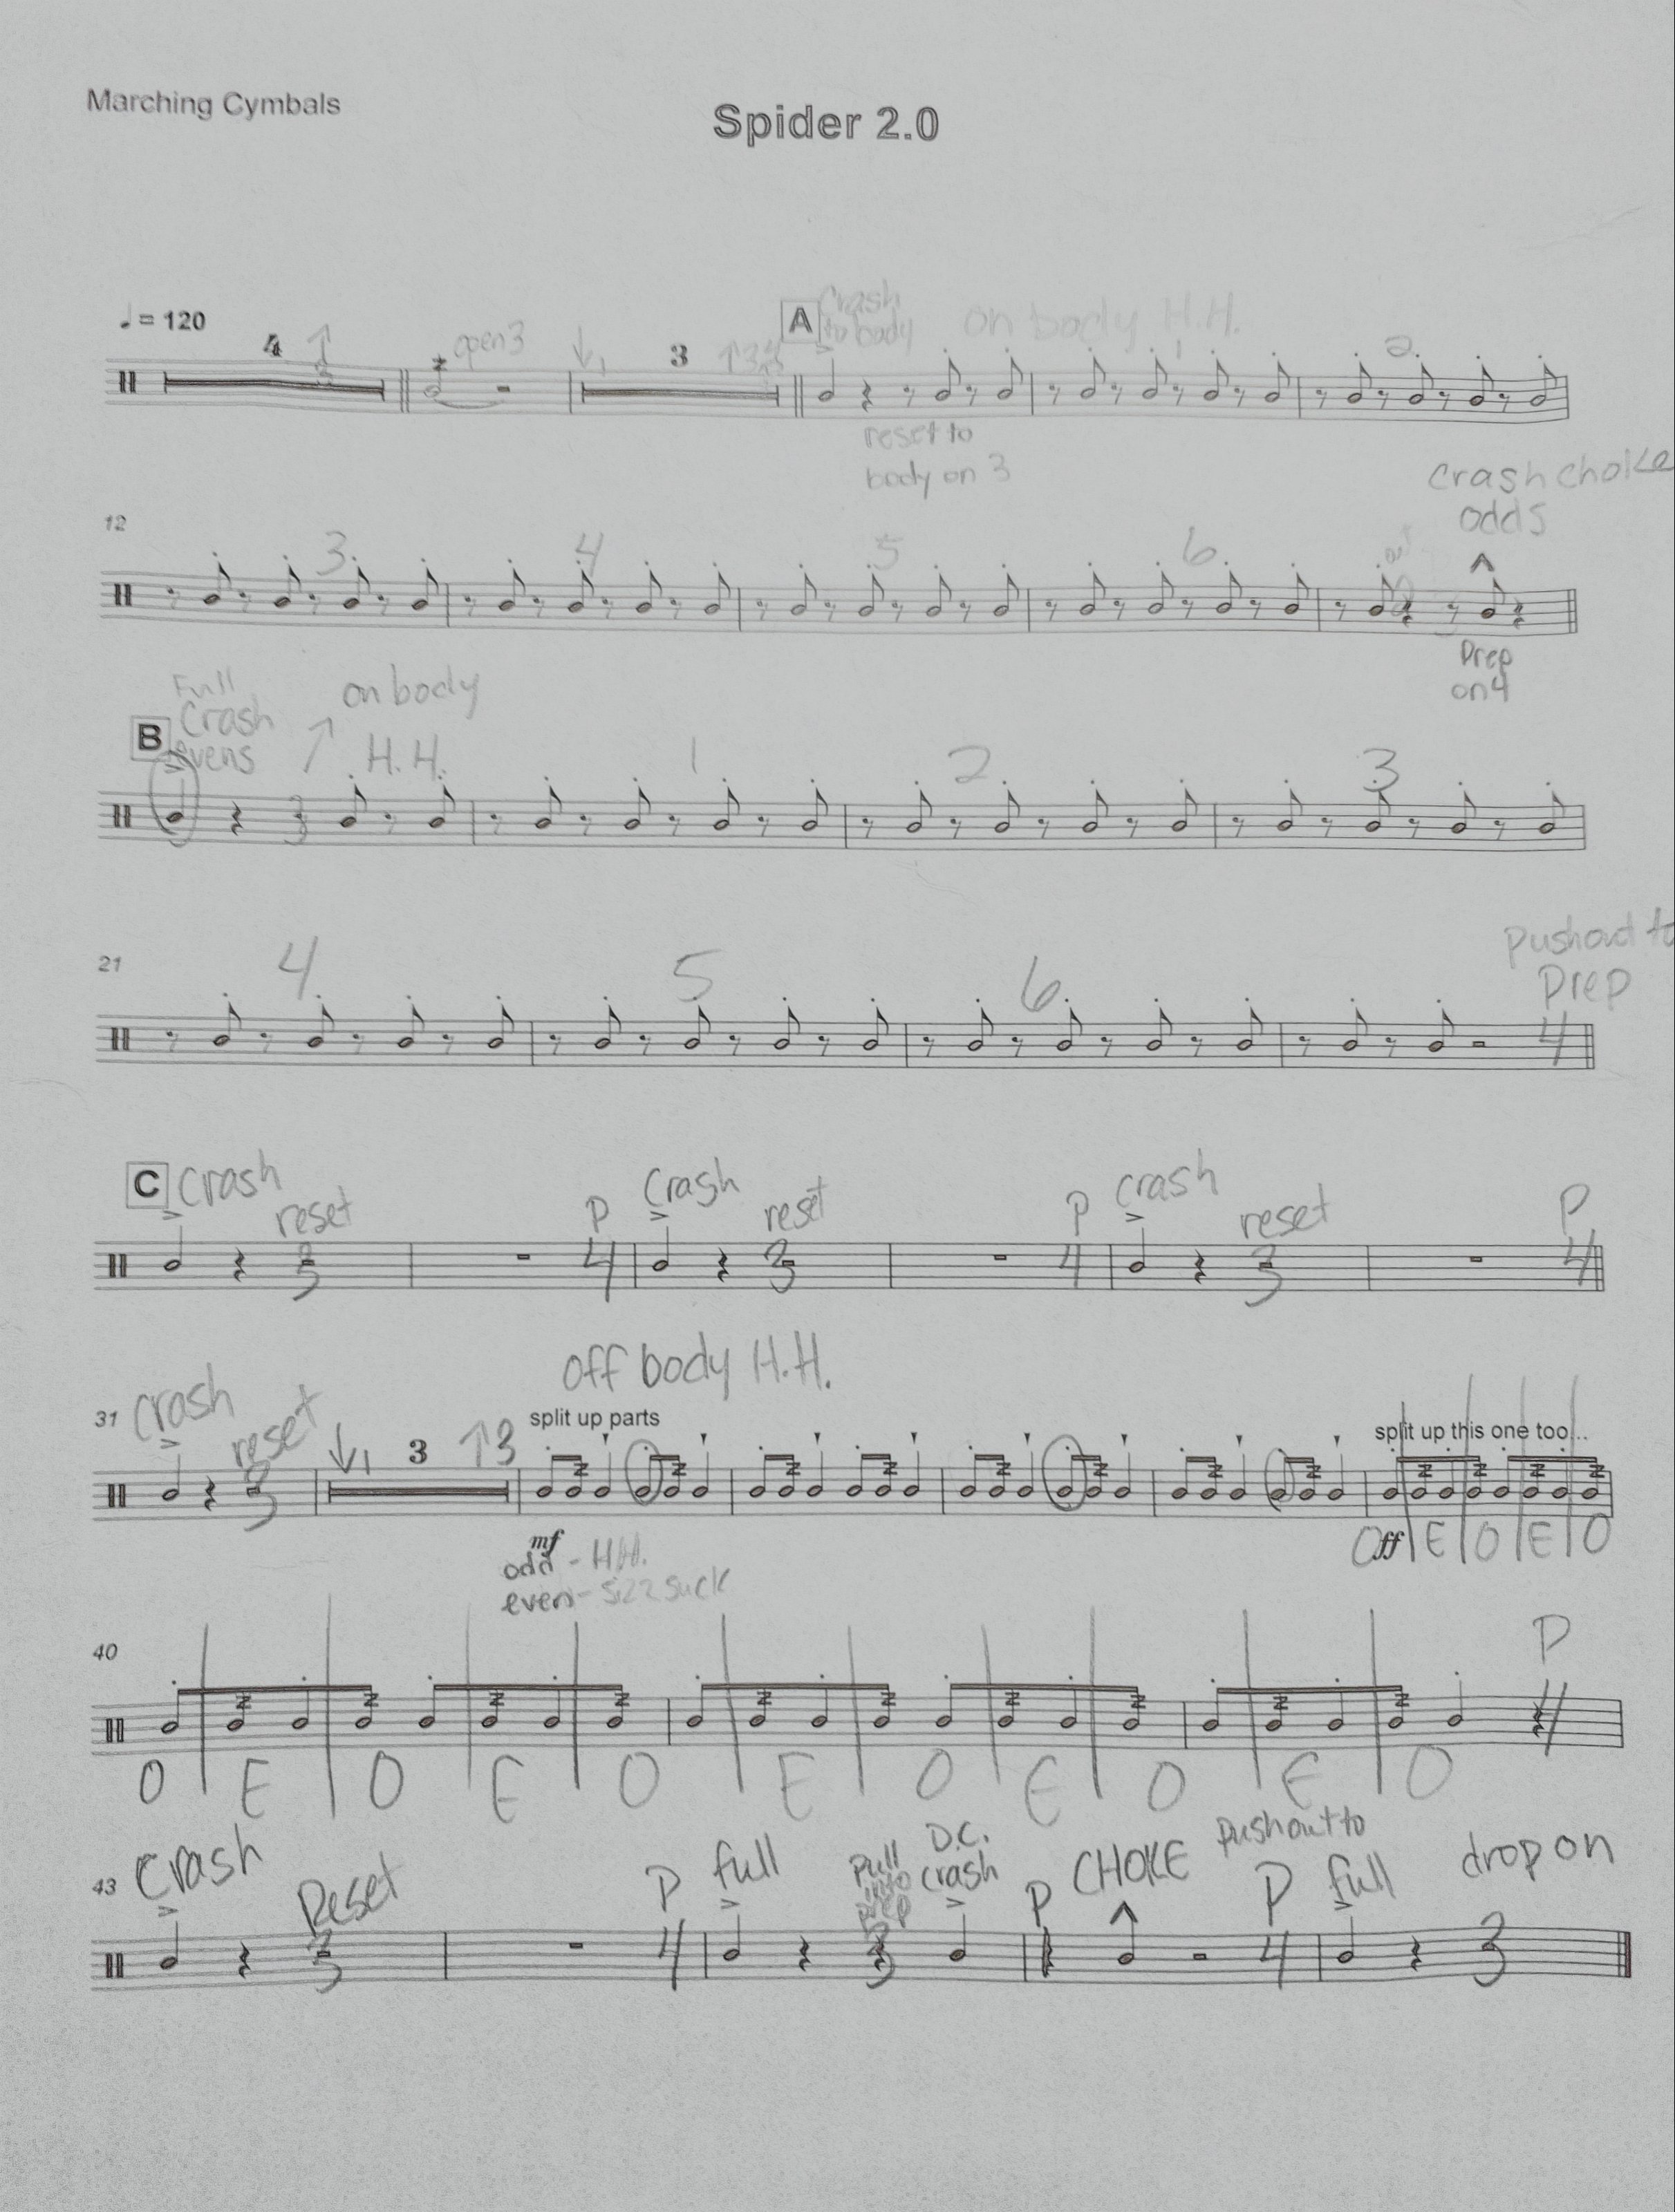 Marching Cymbals
Spider 2.0
♩ = 120
4
↑
3
open 3
↓1
3
↑3
A
Crash
to body
on body H.H.
1
2
reset to
body on 3
12
3
4
5
6
crash choke
odds
^
Prep
on 4
B
Full
Crash
evens
↗
on body
H.H.
3
1
2
3
21
4
5
6
pushout to
prep
4
C
crash
reset
3
P
4
crash
reset
3
P
4
crash
reset
3
P
4
off body H.H.
31
crash
reset
3
↓1
3
↑3
split up parts
split up this one too...
mf
odd - H.H.
even - sizzsuck
ff
O E O E O
40
P
4
O E O E O E O E O E O
43
Crash
Reset
3
P
4
full
pull
into
prep
3
D.C.
crash
P
CHOKE
pushout to
P
4
full
drop on
3